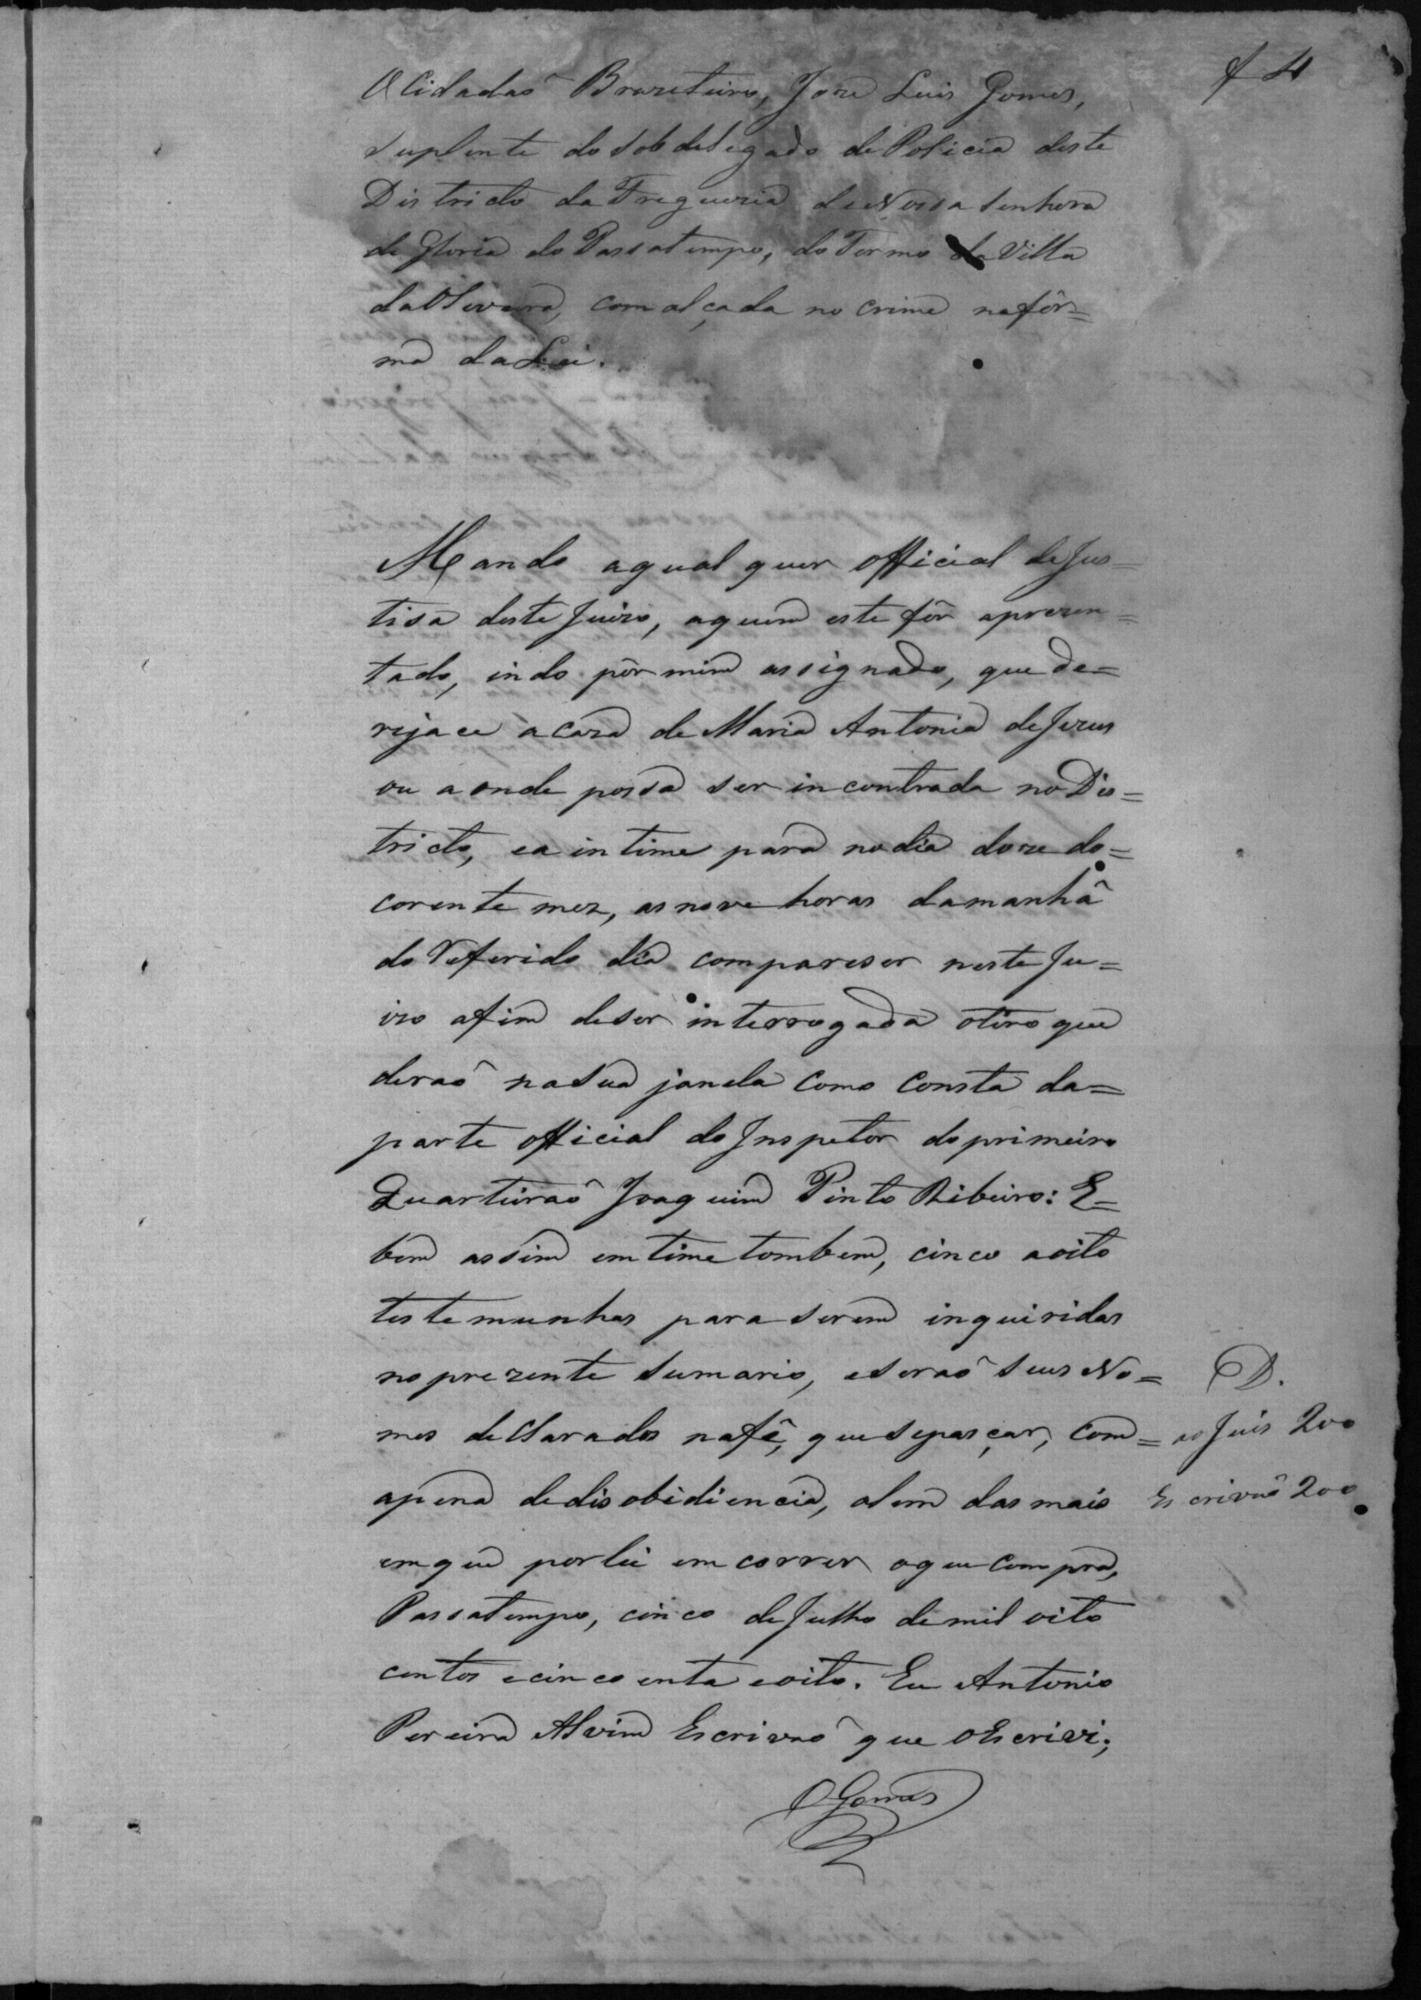 f 4
O Cidadaõ Brazileiro, Joze Luis Gomes,
Suplente do Sobdelegado de Policia deste
Districto da Freguezia de Nossa Senhora
da Gloria do Passatempo, do Termo da Villa
da Oliveira, com alçada no crime na fôr=
ma da Lei.
Mando a qual quer Official de Jus=
tisa deste Juizo, a quem este fôr aprezen=
tado, indo pôr mim assignado, que de=
rija ce a caza de Maria Antonia de Jezus
ou a onde possa ser incontrada no Dis=
tricto, e a intime para no dia doze do=
corente mez, as nove horas da manhâ
do referido dia compareser neste Ju=
izo afim de ser interrogada o tiro que
deraõ na sua janela como consta da=
parte official do Inspetor do primeiro
Quarteiraõ Joaquim Pinto Ribeiro: E=
bem assim em time tombem, cinco a oito
testemunhas para serem inquiridas
no prezente Sumario, e seraõ seus No=
mes declarados na fê, que se pasçar, com=
apena de disobidiencia, alem das mais
em que por lei em correr o que compra,
Passatempo, cinco de Julho de mil oito
centos e cincoenta e oito. Eu Antonio
Pereira Alvim Escrivaõ que o Escrivi;
Gomes
D.
ao Juis 200
Escrivaõ 200